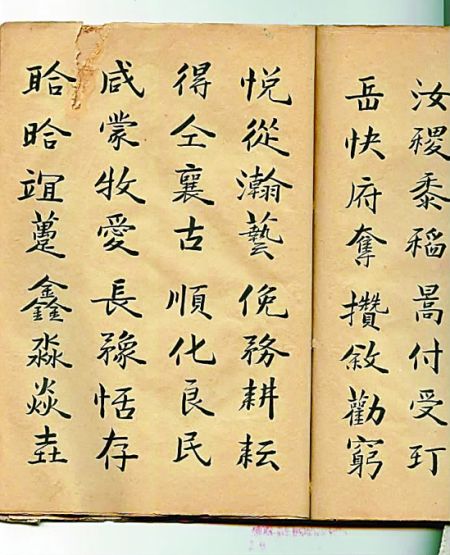 汝稷黍稻暠付受玎
岳快府奪攢敘勸窮
悦從瀚藝俛務耕耘
得仝襄古順化良民
咸蒙牧愛長豫恬存
晗竩躉鑫淼焱垚